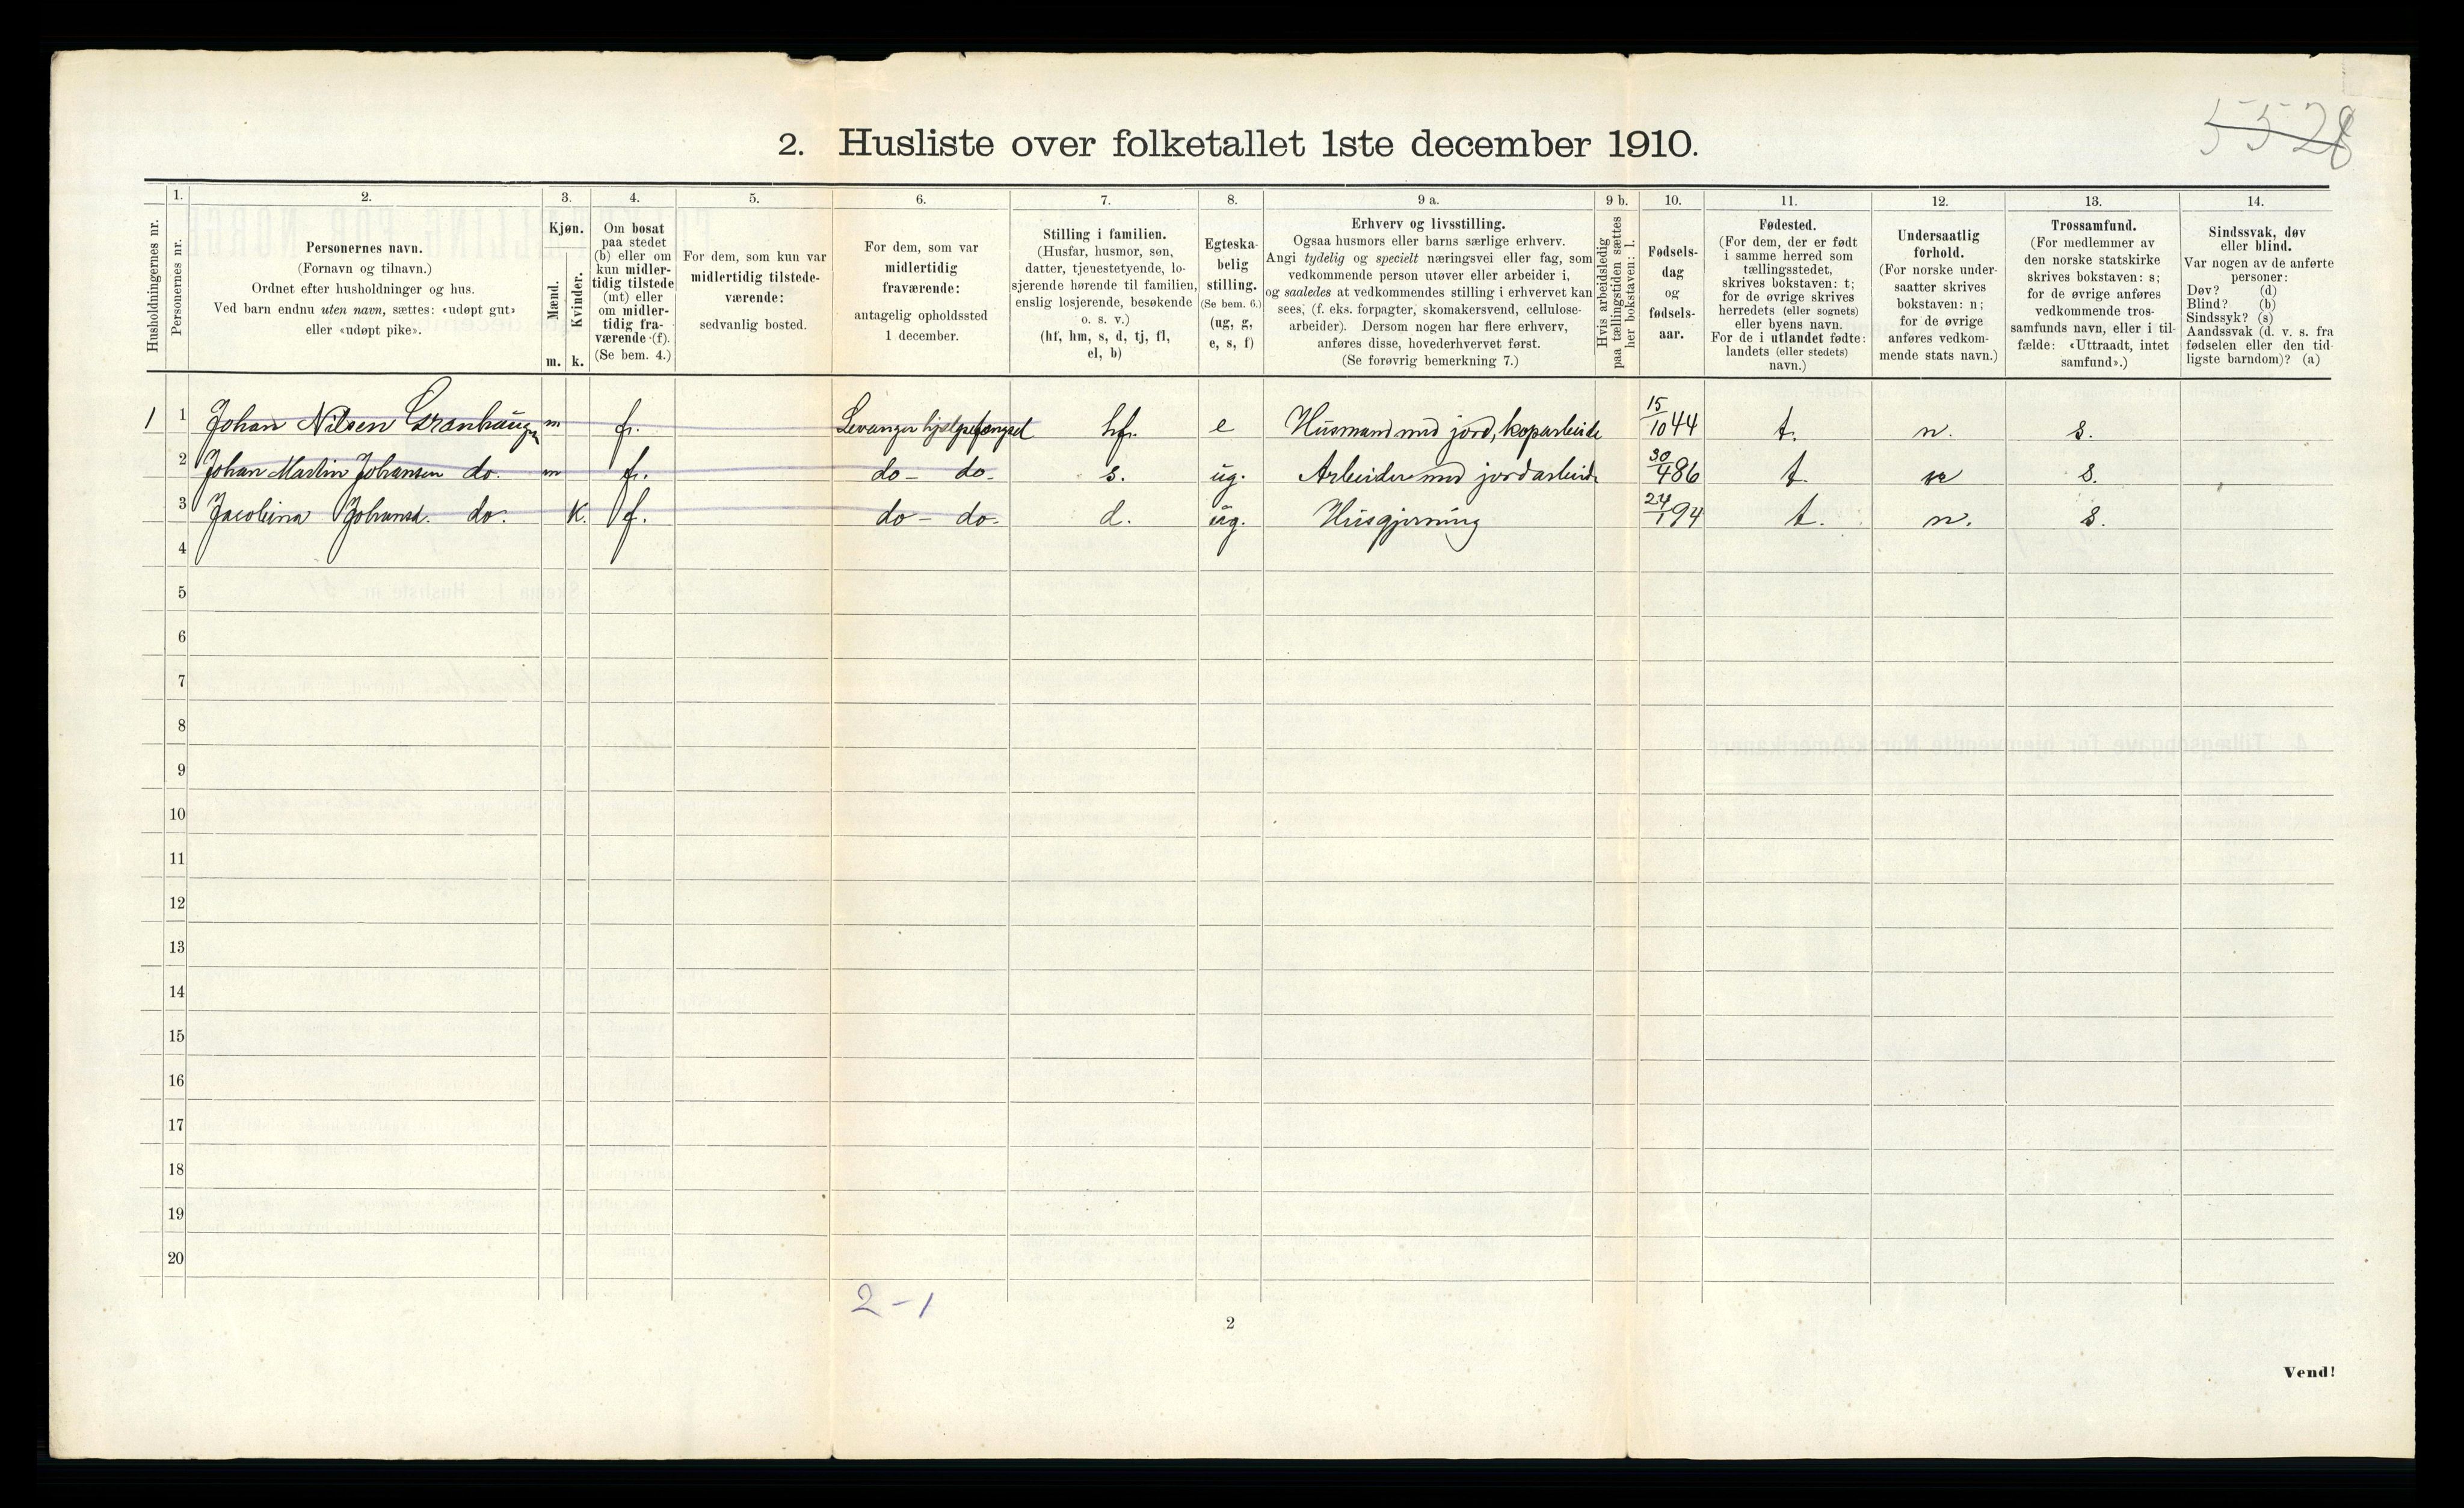 5528
2. Husliste over folketallet 1ste december 1910.
Husholdningernes nr.
1.
Personernes nr.
2.
Personernes navn.
(Fornavn og tilnavn.)
Ordnet efter husholdninger og hus.
Ved barn endnu uten navn, sættes: «udøpt gut»
eller «udøpt pike».
3.
Kjøn.
Mænd.
Kvinder.
m. k.
4.
Om bosat
paa stedet
(b) eller om
kun midler-
tidig tilstede
(mt) eller
om midler-
tidig fra-
værende (f).
(Se bem. 4.)
5.
For dem, som kun var
midlertidig tilstede-
værende:
sedvanlig bosted.
6.
For dem, som var
midlertidig
fraværende:
antagelig opholdssted
1 december.
7.
Stilling i familien.
(Husfar, husmor, søn,
datter, tjenestetyende, lo-
sjerende hørende til familien,
enslig losjerende, besøkende
o. s. v.)
(hf, hm, s, d, tj, fl,
el, b)
8.
Egteska-
belig
stilling.
(Se bem. 6.)
(ug, g,
e, s, f)
9 a.
Erhverv og livsstilling.
Ogsaa husmors eller barns særlige erhverv.
Angi tydelig og specielt næringsvei eller fag, som
vedkommende person utøver eller arbeider i,
og saaledes at vedkommendes stilling i erhvervet kan
sees, (f. eks. forpagter, skomakersvend, cellulose-
arbeider). Dersom nogen har flere erhverv,
anføres disse, hovederhvervet først.
(Se forøvrig bemerkning 7.)
9 b.
Hvis arbeidsledig
paa tællingstiden sættes
her bokstaven: l.
10.
Fødsels-
dag
og
fødsels-
aar.
11.
Fødested.
(For dem, der er født
i samme herred som
tællingsstedet,
skrives bokstaven: t;
for de øvrige skrives
herredets (eller sognets)
eller byens navn.
For de i utlandet fødte:
landets (eller stedets)
navn.)
12.
Undersaatlig
forhold.
(For norske under-
saatter skrives
bokstaven: n;
for de øvrige
anføres vedkom-
mende stats navn.)
13.
Trossamfund.
(For medlemmer av
den norske statskirke
skrives bokstaven: s;
for de øvrige anføres
vedkommende tros-
samfunds navn, eller i til-
fælde: «Uttraadt, intet
samfund».)
14.
Sindssvak, døv
eller blind.
Var nogen av de anførte
personer:
Døv? (d)
Blind? (b)
Sindssyk? (s)
Aandssvak (d. v. s. fra
fødselen eller den tid-
ligste barndom)? (a)
1 1 Johan Nilsen Granhaugen m f. Levanger hjelpefængsel hf. e Husmand med jord, koparbeide 15/10 44 t. n. s.
2 Johan Martin Johansen do. m f. do - do - s. ug. Arbeider med jordarbeide 30/4 86 t. n s.
3 Jacobina Johansd. do. K. f. do - do - d. ug. Husgjerning 24/1 94 t. n. s.
4
5
6
7
8
9
10
11
12
13
14
15
16
17
18
19
20
2 - 1
2
Vend!